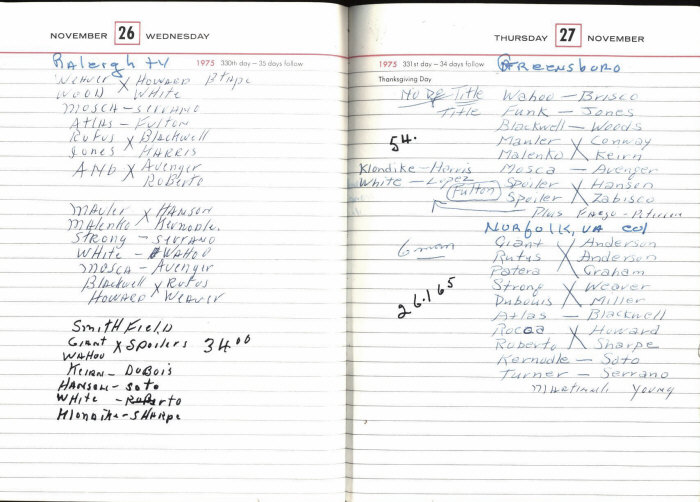 NOVEMBER 26 WEDNESDAY
Raleigh tv 1975 330th day — 35 days follow
Weaver X Howard B tape
Wood White
Mosca - Serrano
Atlas - Fulton
Rufus X Blackwell
Jones Harris
AMB X Avenger
Roberto
Mauler X Hanson
Malenko Kernodle
Strong - Serrano
White - Wahoo
Mosca - Avenger
Blackwell X Rufus
Howard Weaver
Smithfield
Giant X Spoilers 3400
Wahoo
Keirn - Dubois
Hanson - Soto
White - Roberto
Klondike - Sharpe
THURSDAY 27 NOVEMBER
1975 331st day — 34 days follow Greensboro
Thanksgiving Day
No DQ Title Wahoo - Brisco
Title Funk - Jones
Blackwell - Woods
54. Mauler X Conway
Malenko Keirn
Klondike - Harris Mosca - Avenger
White - Lopez Spoiler X Hanson
Fulton Spoiler Zabisco
Plus Fargo -
Norfolk, VA col
6 man Giant X Anderson
Rufus Anderson
Patera Graham
26.165 Strong X Weaver
Dubouis Miller
Atlas - Blackwell
Rocca X Howard
Roberto Sharpe
Kernodle - Soto
Turner - Serrano
Young